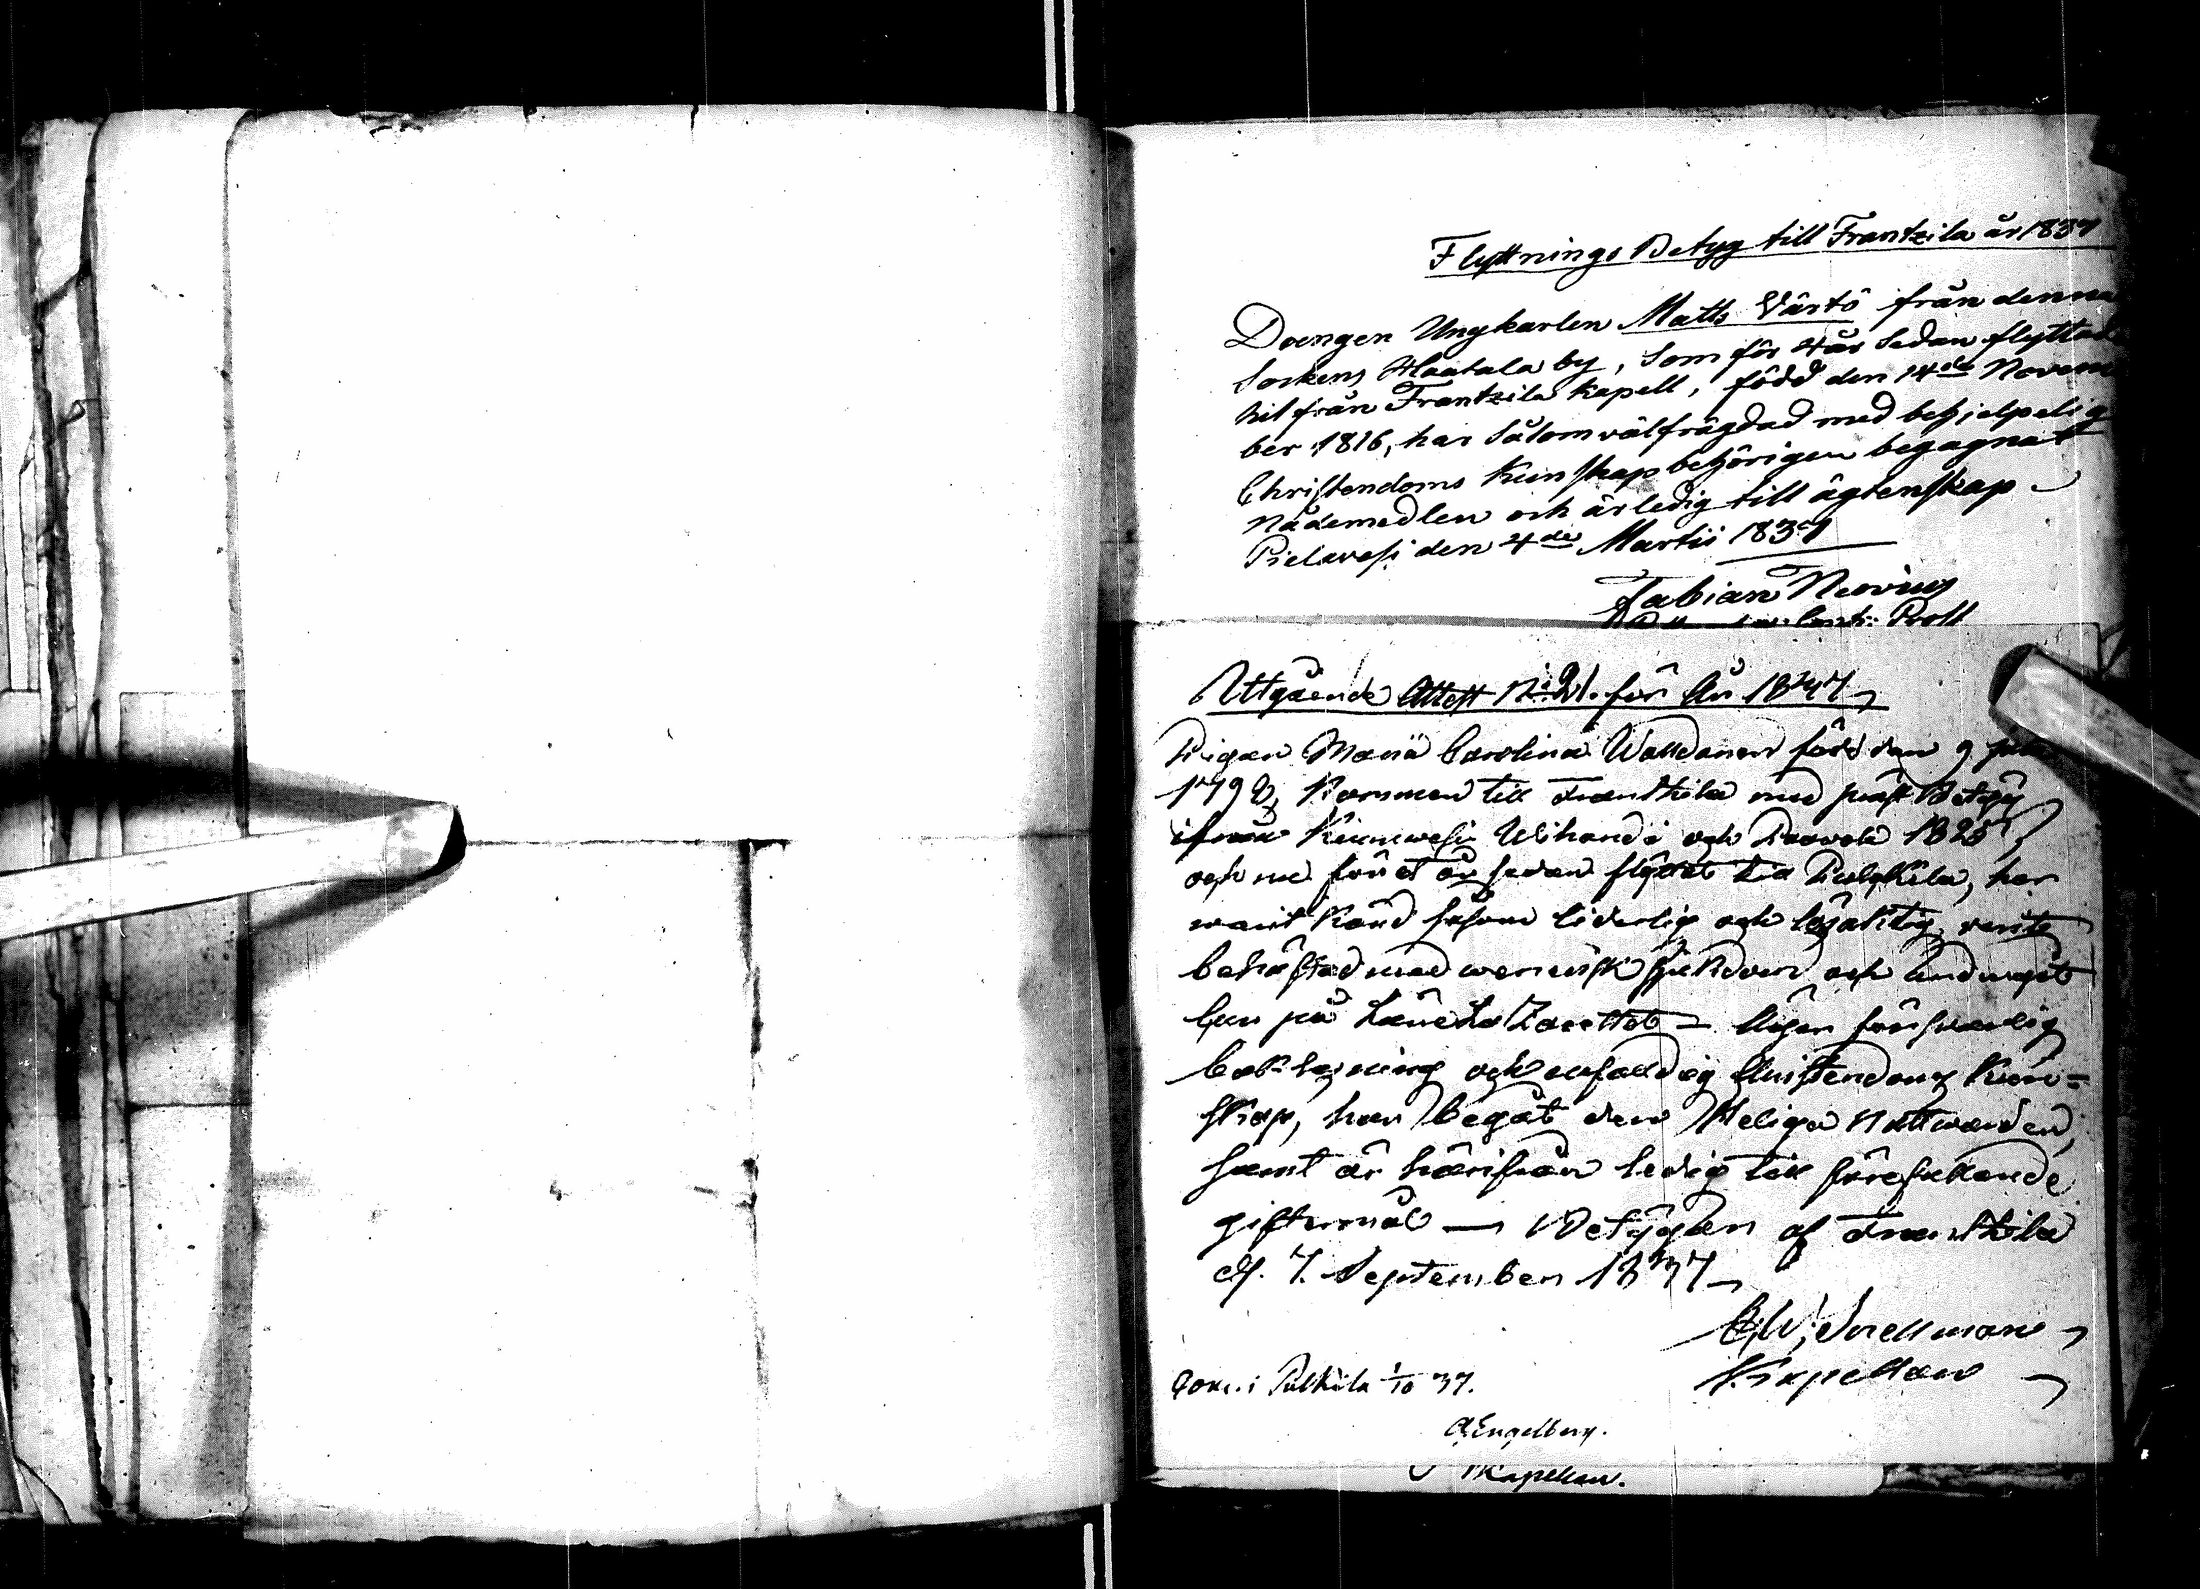 Flyttnings Betyg till Frantzila år 1837
Drengen Ungkarlen Matts Värtö från denna
Sockens Haatala by, som för 4 år sedan flyttad
hit från Frantzila kapell, född den 14de Novem
ber 1816, har såsom välfrägdad med behjelpelig
Christendoms kunskap behörigen begagnat
nådemedlen och är ledig till ägtenskap
Pielavesi den 4de Martii 1837
Fabian Neovius
Prost
Utgående Attest No 21. för År 1837
Pigan Maria Carolina Walldanen född den 9
179 kommen till Frantzila med präst Betyg
ifrån Wihandi och 1825
och nu för ett år sedan flyttat till Pulkkila, har
warit känd såsom liderlig och lösaktig,
behäftad med wenerisk sjukdom och undergått
Cur på Läns Lazarettet – Äger försvarlig
bok-läsning och enfaldig Christendoms kun=
skap, har begått den Heliga Nattwarden,
samt är härifrån ledig till förefallande
giftermål — Betygar af Frantzila
d. 7. September 1837
C. W. Snellman
Kapellan
i Pulkkila 1/10 37.
A Engelberg.
Kapellan.